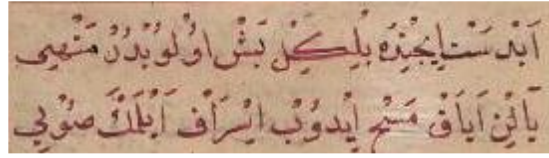 اَبْدَسْت اِيچِنْدَه بِلِكِلْ بَشْ اوُلوُبْدُرْ مَنْهِي
يَالِنْ اَيَاقْ مَسْحِ ايْدوُبْ اِسْرَافْ اَيْلَمَكْ صُويِي